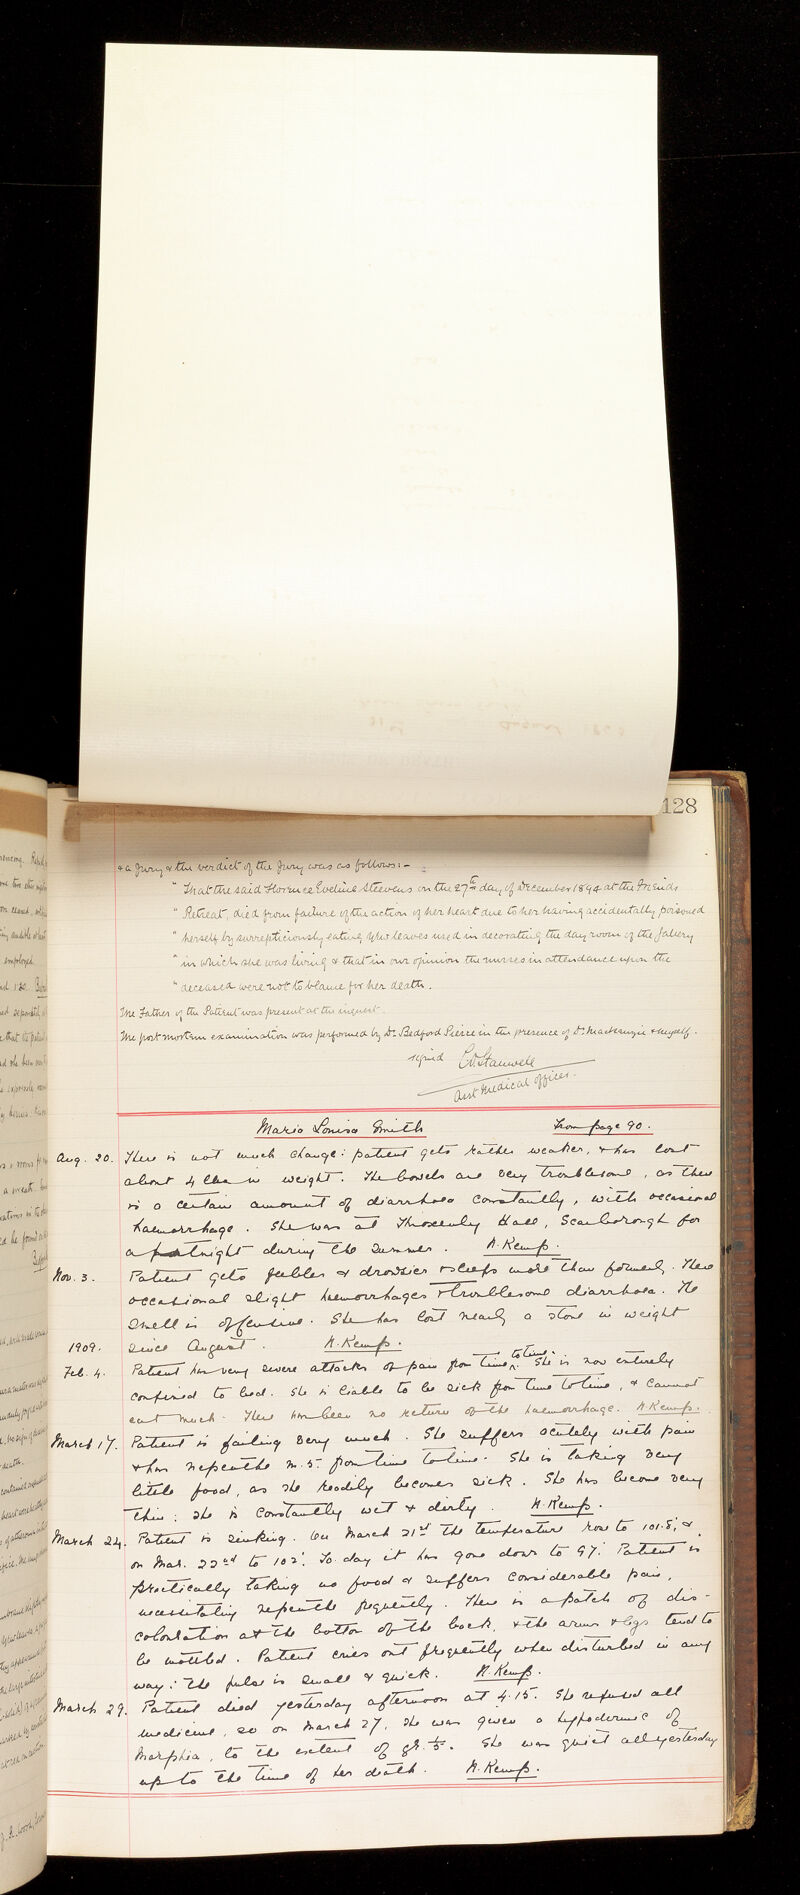 128
& a Jury & the verdict of the Jury was as follows:-
" That the said Florence Eveline Steevens on the 27th day of December 1894 at the Friends
" Retreat, died from failure of the action of her heart due to her having accidentally poisoned
" herself by surrepticiously eating Yew leaves used in decorating the day room of the Gallery
" in which she was living & that in our opinion the nurses in attendance upon the
" deceased were not to blame for her death.
The Father of the Patient was present at the inquest.
The post mortem examination was performed by Dr. Bedford Pierce in the presence of Dr. Mackenzie & myself.
signed
Asst Medical Officer.
Maria Louisa Smith From page 90.
Aug. 20. There is not much change: patient gets rather weaker, & has lost
about 4 lbs in weight. The bowels are very troublesome, as there
is a certain amount of diarrhoea constantly, with occasional
haemorrhage. She was at Throxenby Hall, Scarborough for
a fortnight during the summer. N. Kemp.
Nov. 3. Patient gets feebler & drowsier & sleeps more than formerly. There
occasional slight haemorrhages & troublesome diarrhoea. The
smell is offensive. She has lost nearly a stone in weight
since August. N. Kemp.
1909.
Feb. 4. Patient has very severe attacks of pain from time to time. She is now entirely
confined to bed. She is liable to be sick from time to time, & cannot
eat much. There has been no return of the haemorrhage. N. Kemp.
March 17. Patient is failing very much. She suffers acutely with pain
& has nepenthe m. 5. from time to time. She is taking very
little food, as she readily becomes sick. She has become very
thin: she is constantly wet & dirty. N. Kemp.
March 24. Patient is sinking. On March 21st the temperature rose to 101.8°, &
on Mar. 22nd to 102°. To day it has gone down to 97°. Patient is
practically taking no food & suffers considerable pain,
necessitating nepenthe frequently. There is a patch of dis-
colouration at the bottom of the back, & the arms & legs tend to
be mottled. Patient cries out frequently when disturbed in any
way: the pulse is small & quick. N. Kemp.
March 29. Patient died yesterday afternoon at 4.15. She refused all
medicine, so on March 27, she was given a hypodermic of
Morphia, to the extent of gr. 1/5. She was quiet all yesterday
up to the time of her death. N. Kemp.